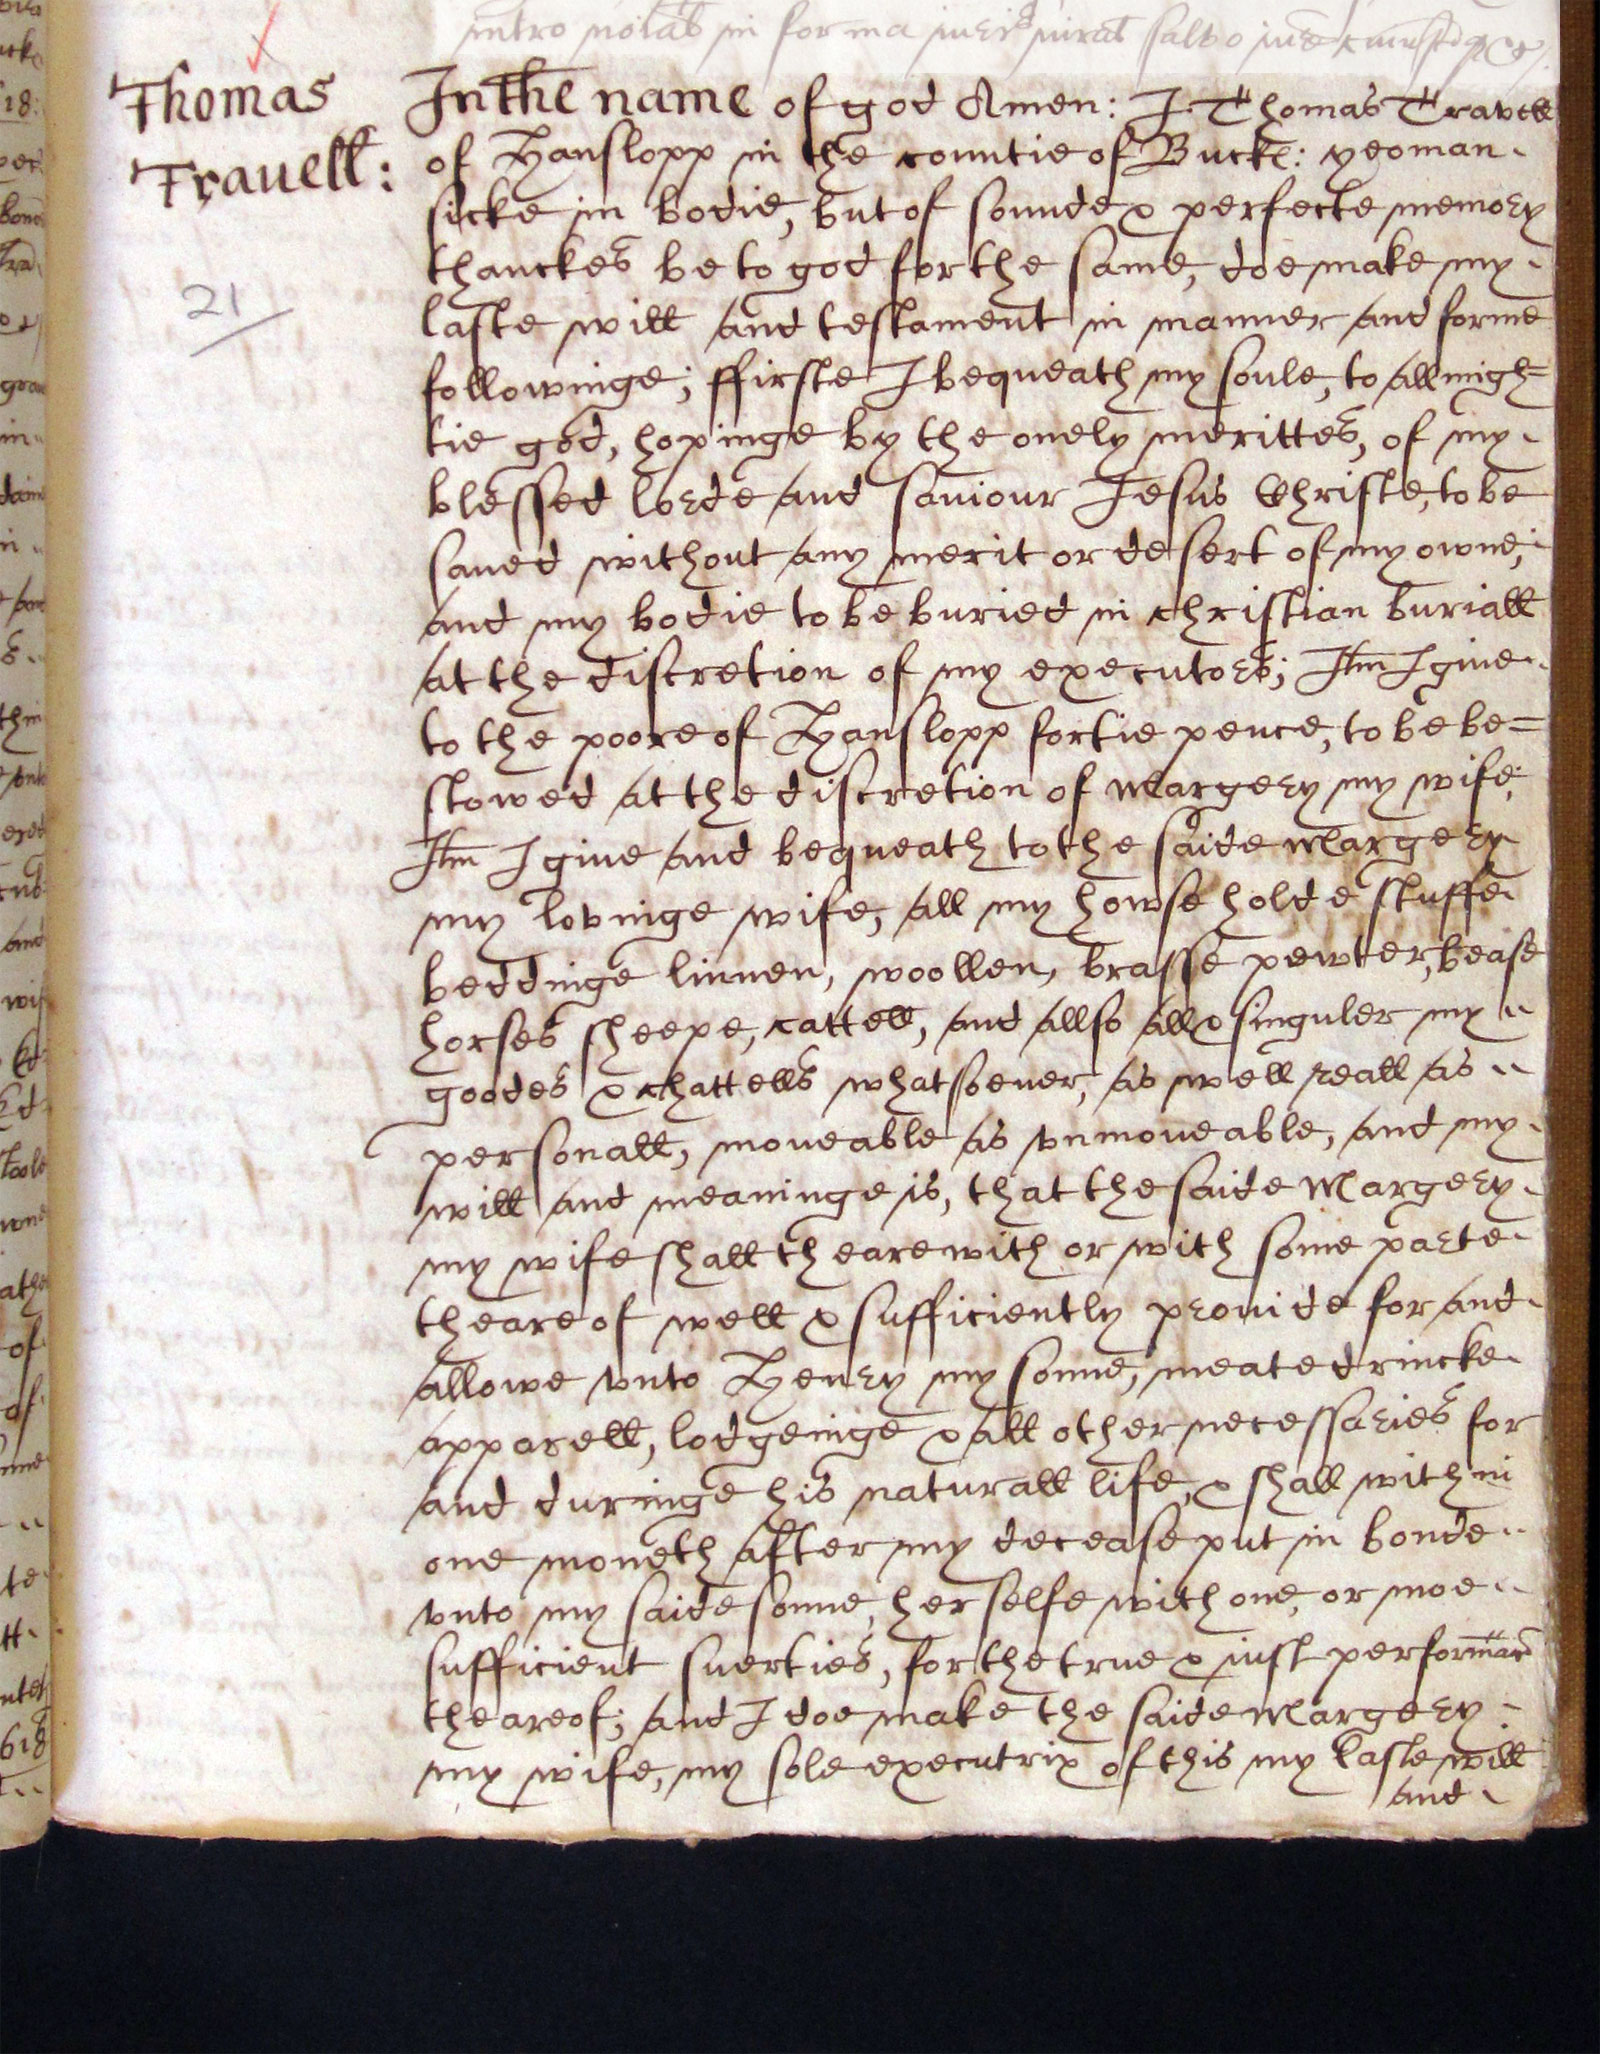 Thomas
Travell:
21
In the name of god Amen: I Thomas Travell
of Hanslopp in the countie of Buck: yeoman
sicke in bodie, but of sounde & perfecte memory
thanckes be to god for the same, doe make my
laste will and testament in manner and forme
followinge; ffirste I bequeath my soule, to allmigh=
tie god, hopinge by the onely merittes, of my
blessed lorde and saviour Jesus Christe, to be
saued without any merit or desert of my owne;
and my bodie to be buried in christian buriall
at the discretion of my executors; Itm I giue
to the poore of Hanslopp fortie pence, to be be=
stowed at the discretion of Margery my wife;
Itm I giue and bequeath to the saide Margery
my lovinge wife, all my howse holde stuffe
beddinge linnen, woollen, brasse pewter, bease
horses sheepe, cattell, and allso all & singuler my
goodes & chattells whatsoeuer, as well reall as
personall, moueable as vnmoueable, and my
will and meaninge is, that the saide Margery
my wife shall thearewith or with some parte
theareof well & sufficiently prouide for and
allowe vnto Henry my sonne, meate drincke
apparell, lodgeinge & all other necessaries for
and duringe his naturall life, & shall within
one moneth after my decease put in bonde
vnto my saide sonne, her selfe with one, or moe
sufficient suerties, for the true & iust performac
theareof; and I doe make the saide Margery
my wife, my sole executrix of this my laste will
and